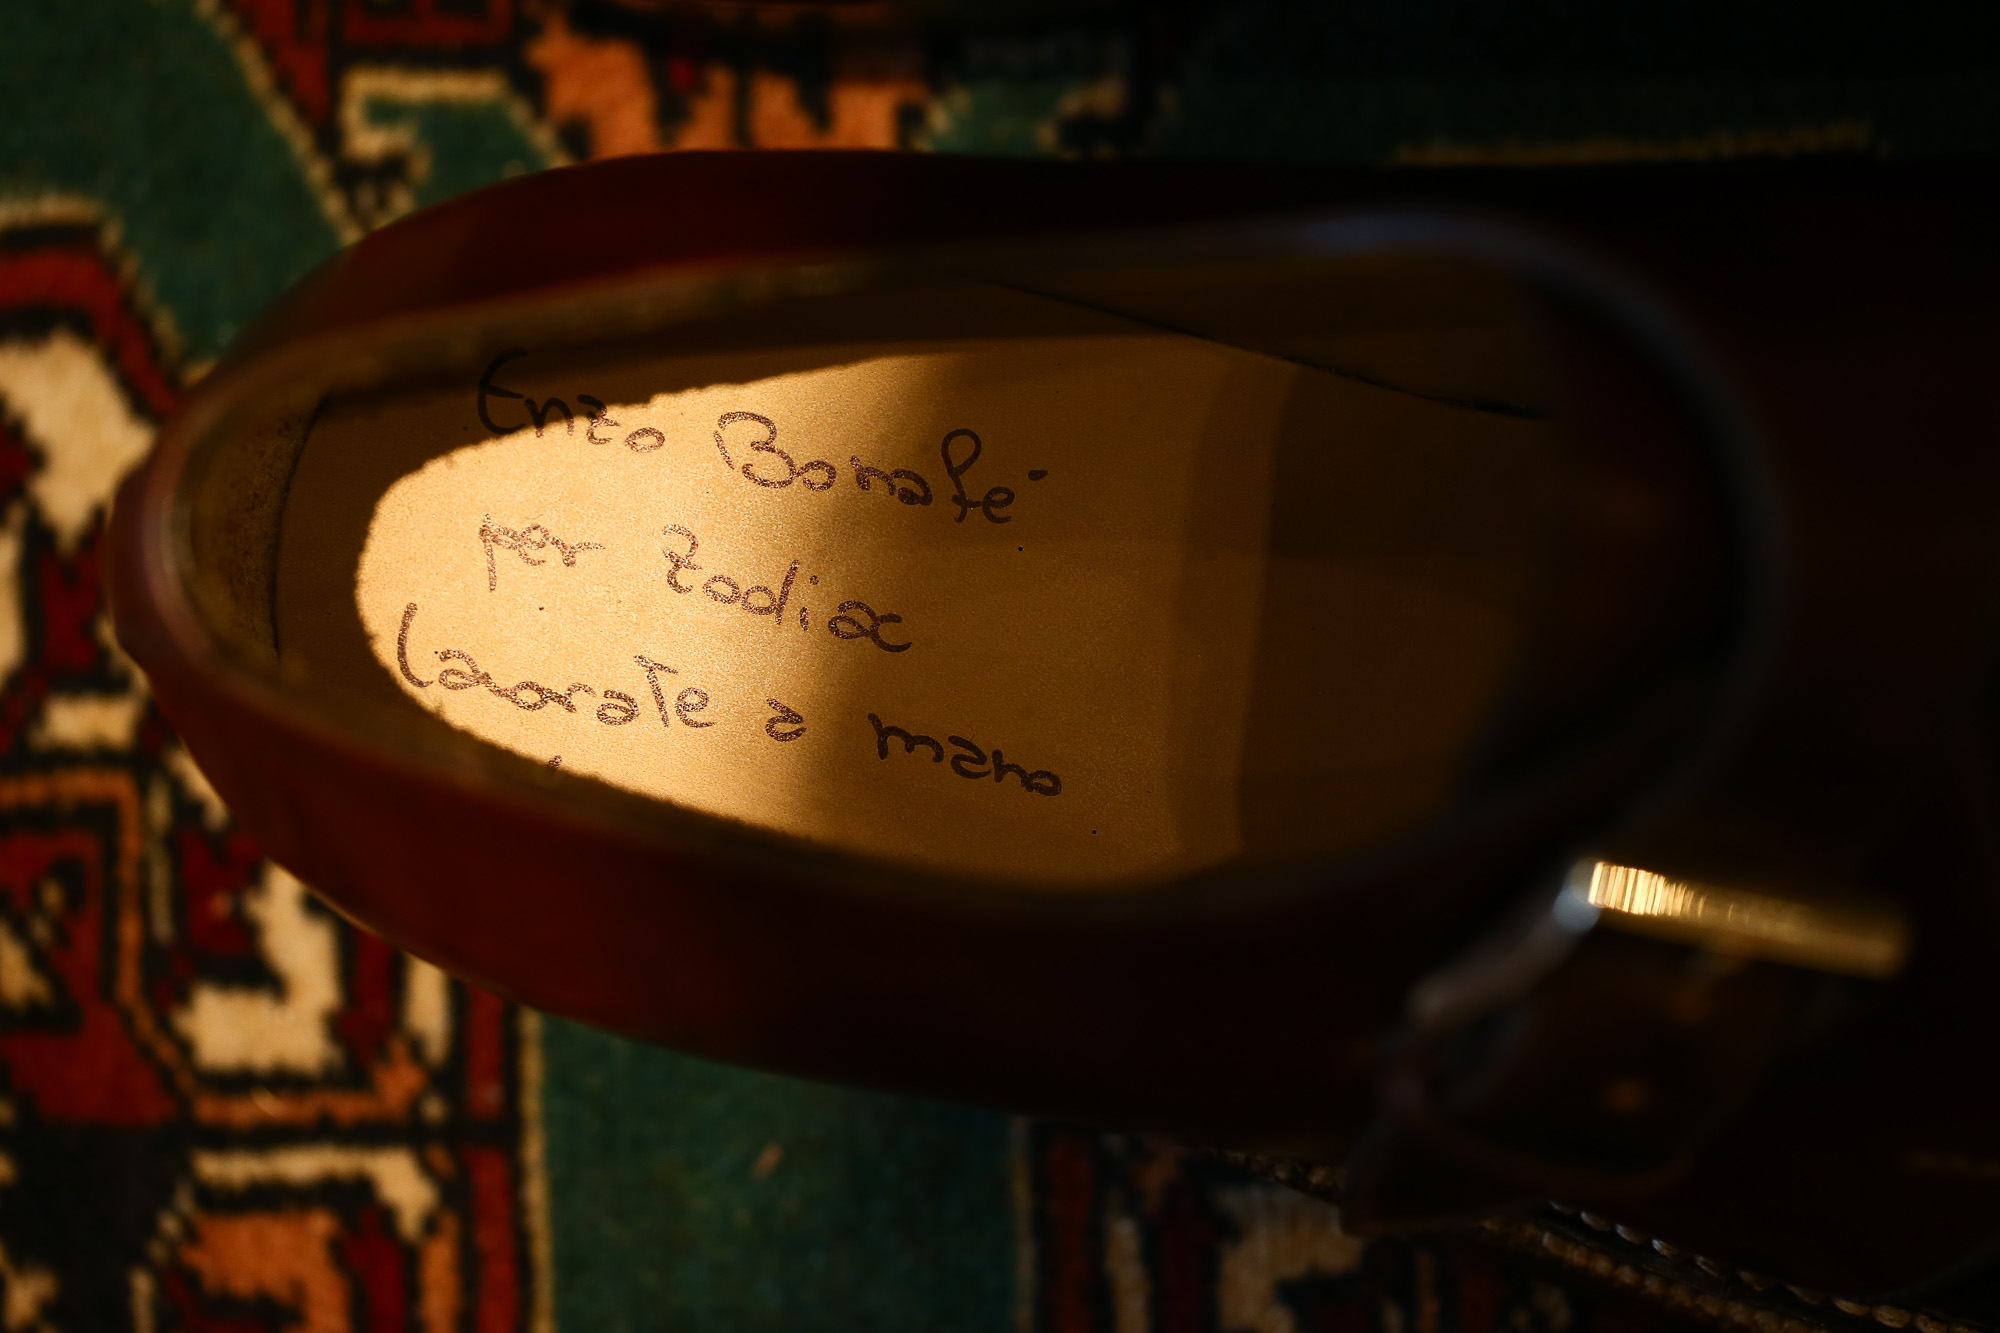 Enzo Bonafé
per Zodiac
Lavorate a mano